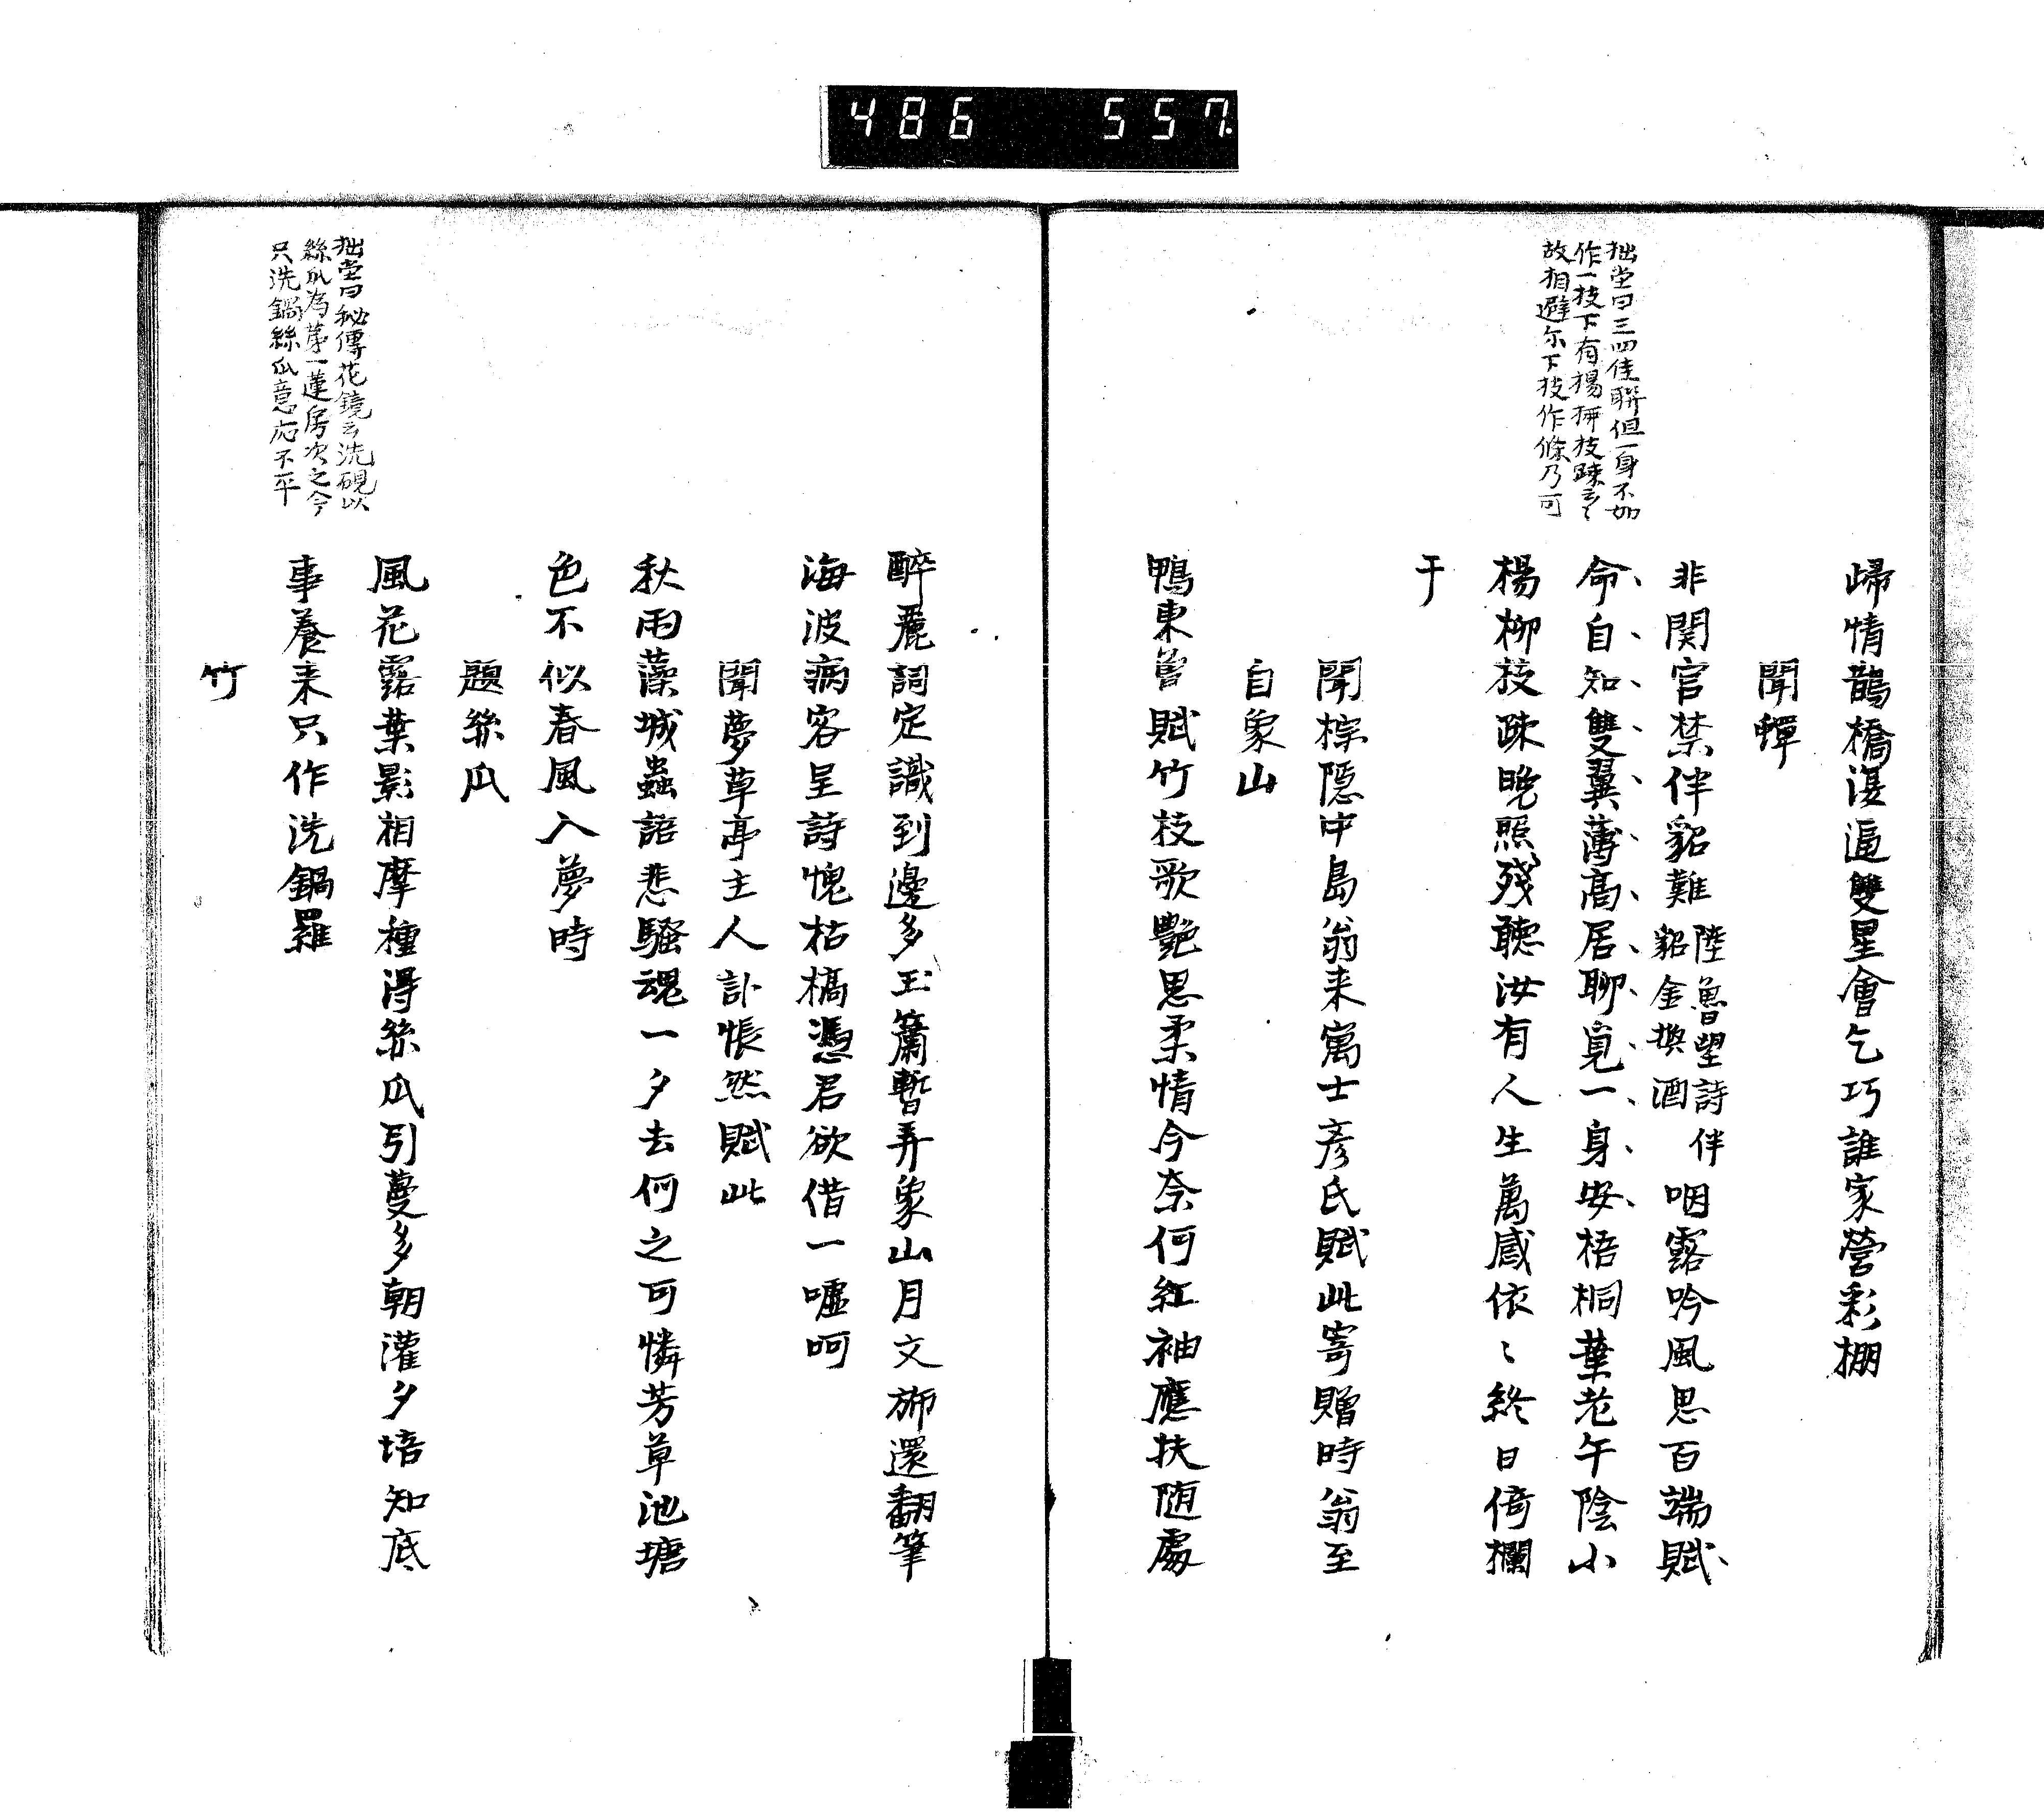 486 557.
拙堂曰三四佳聯但一身不如
作一枝下有楊柳枝踈云〻
故相避尓下枝作條乃可
歸情鵲橋湲逼雙星會乞巧誰家營彩棚
聞蟬
非関官禁伴貂難陸魯望詩伴貂金換酒咽露吟風思百端賦
命自知雙翼薄高居聊覓一身安梧桐葉老午陰小
楊柳枝踈晩照殘聽汝有人生萬感依〻終日倚欄
干
聞棕隠中島翁来寓士彦氏賦此寄贈時翁至
自象山
鴨東曾賦竹枝歌艶思柔情今奈何紅袖應扶随處
醉麗詞定識到邊多玉簫暫弄象山月文斾還翻筆
海波病客呈詩愧枯槁憑君欲借一噓呵
聞夢草亭主人訃悵然賦此
秋雨藻城蟲語悲騷魂一夕去何之可憐芳草池塘
色不似春風入夢時
拙堂曰秘傳花鏡云洗硯以
絲瓜為第一蓮房次之今
只洗鍋絲瓜意応不平
題絲瓜
風花露葉影相摩種得絲瓜引蔓多朝灌夕培知底
事養来只作洗鍋羅
竹